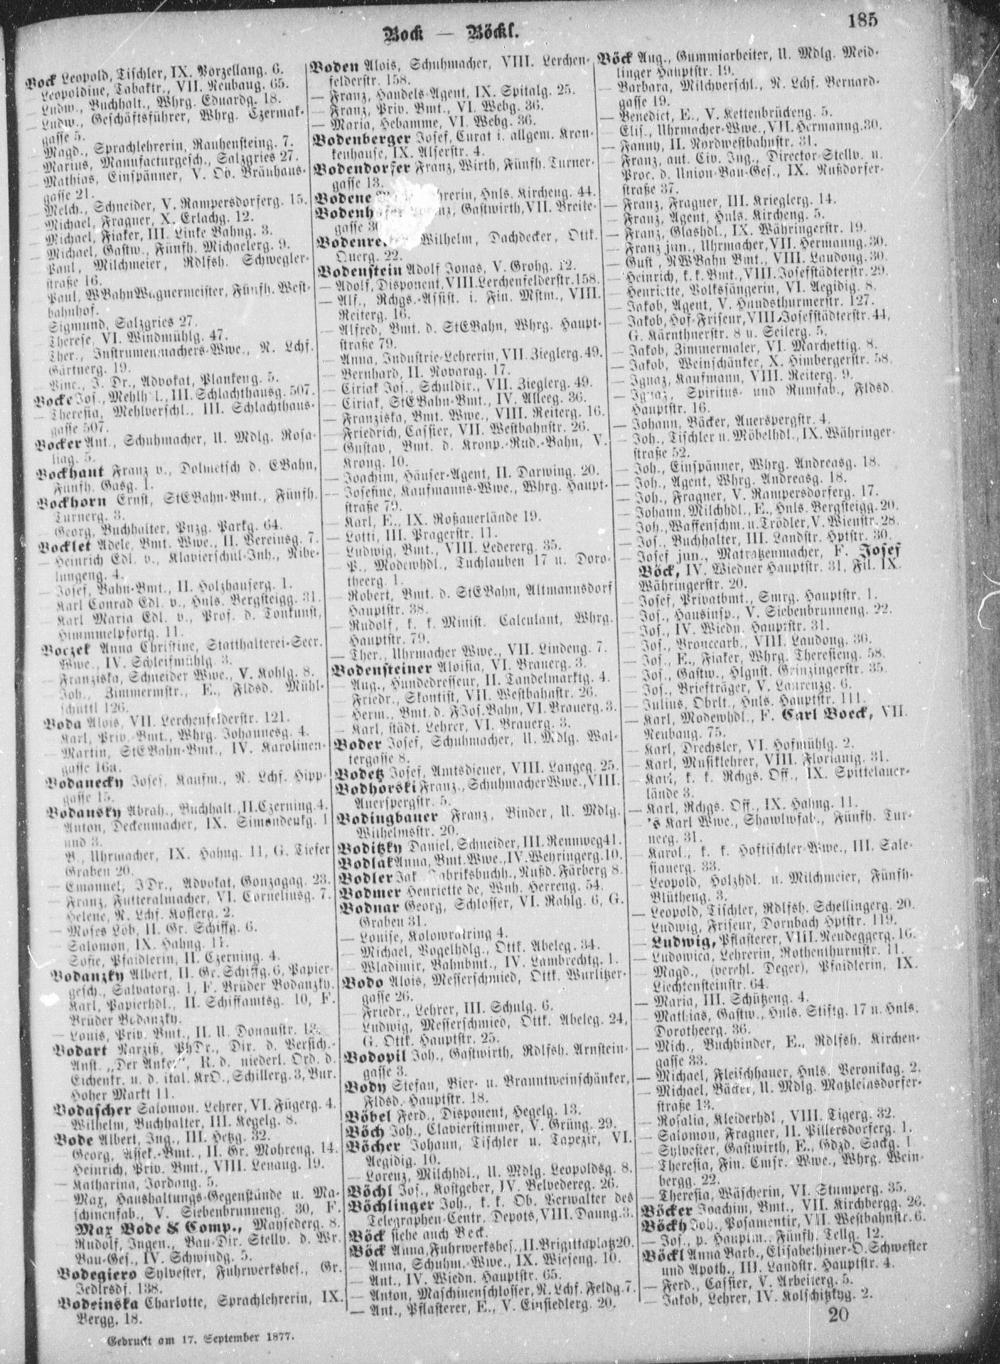 Bock — Böckl.
185
Bock Leopold, Tischler, IX. Porzellang. 6.
— Leopoldine, Tabaktr., VII. Neubaug. 65.
— Ludw., Buchhalt., Whrg. Eduardg. 18.
— Ludw., Geschäftsführer, Whrg. Czermak-
gasse 5.
— Magd., Sprachlehrerin, Rauhensteing. 7.
— Marius, Manufacturgesch., Salzgries 27.
— Mathias, Einspänner, V. Ob. Bräuhaus-
gasse 21.
— Melch., Schneider, V. Rampersdorferg. 15.
— Michael, Fragner, X. Erlachg. 12.
— Michael, Fiaker, III. Linke Bahng. 3.
— Michael, Gastw., Fünfh. Michaelerg. 9.
— Paul, Milchmeier, Rdlfsh. Schwegler-
straße 16.
— Paul, WBahnWagnermeister, Fünfh. West-
bahnhof.
— Sigmund, Salzgries 27.
— Therese, VI. Windmühlg. 47.
— Ther., Instrumenmachers-Wwe., N. Lchf.
Gärtnerg. 19.
— Vinc., J. Dr., Advokat, Plankeng. 5.
Bocke Jos., Mehlh l., III. Schlachthausg. 507.
— Theresia, Mehlverschl., III. Schlachthaus-
gasse 507.
Bocker Ant., Schuhmacher, U. Mdlg. Rosa-
liag. 5.
Bockhaut Franz v., Dolmetsch d. EBahn,
Fünfh. Gasg. 1.
Bockhorn Ernst, StEBahn-Bmt., Fünfh.
Turnerg. 3.
— Georg, Buchhalter, Pnzg. Parkg. 64.
Bocklet Adele, Bmt. Wwe., II. Vereinsg. 7.
— Heinrich Edl. v., Klavierschul-Inh., Nibe-
lungeng. 4.
— Josef, Bahn-Bmt., II. Holzhauserg. 1.
— Karl Conrad Edl. v., Hnls. Bergsteigg. 31.
— Karl Maria Edl. v., Prof. d. Tonkunst,
Himmmelpfortg. 11.
Boczek Anna Christine, Statthalterei-Secr.
Wwe., IV. Schleifmühlg. 3.
— Franziska, Schneider Wwe., V. Kohlg. 8.
— Joh., Zimmermstr., E., Fldsd. Mühl-
schüttl 126.
Boda Alois, VII. Lerchenfelderstr. 121.
— Karl, Priv.-Bmt., Whrg. Johannesg. 4.
— Martin, StEBahn-Bmt., IV. Karolinen-
gasse 16a.
Bodanecky Josef, Kaufm., N. Lchf. Hipp-
gasse 15.
Bodansky Abrah., Buchhalt., II. Czerning. 4.
— Anton, Deckenmacher, IX. Simondenkg. 1
und 3.
— B., Uhrmacher, IX. Hahng. 11, G. Tiefer
Graben 20.
— Emanuel, JDr., Advokat, Gonzagag. 23.
— Franz, Futteralmacher, VI. Corneliusg. 7.
— Helene, N. Lchf. Koflerg. 2.
— Moses Löb, II. Gr. Schiffg. 6.
— Salomon, IX. Hahng. 11.
— Sofie, Pfaidlerin, II. Czerning. 4.
Bodanzky Albert, II. Gr. Schiffg. 6, Papier-
gesch., Salvatorg. 1, F. Brüder Bodanzky.
— Karl, Papierhdl., II. Schiffamtsg. 10, F.
Brüder Bodanzky.
— Louis, Priv. Bmt., II. U. Donaustr. 13.
Bodart Narziß, PhDr., Dir. d. Versich.-
Anst. „Der Anker“, R. d. niederl. Ord. d.
Eichenkr. u. d. ital. KrO., Schillerg. 3, Bur.
Hoher Markt 11.
Bodascher Salomon, Lehrer, VI. Fügerg. 4.
— Wilhelm, Buchhalter, III. Kegelg. 8.
Bode Albert, Ing., III. Hetzg. 32.
— Georg, Assek.-Bmt., II. Gr. Mohreng. 14.
— Heinrich, Priv. Bmt., VIII. Lenaug. 19.
— Katharina, Jordang. 5.
— Max, Haushaltungs-Gegenstände u. Ma-
schinenfab., V. Siebenbrunneng. 30, F.
Max Bode & Comp., Maysederg. 8.
— Rudolf, Ingen., Bau-Dir. Stellv. d. Wr.
Bau-Ges., IV. Schwindg. 5.
Bodegiero Sylvester, Fuhrwerksbes., Gr.
Jedlrsdf. 138.
Bodeinska Charlotte, Sprachlehrerin, IX.
Bergg. 18.
Gedruckt am 17. September 1877.
Boden Alois, Schuhmacher, VIII. Lerchen-
felderstr. 158.
— Franz, Handels-Agent, IX. Spitalg. 25.
— Franz, Priv. Bmt., VI. Webg. 36.
— Maria, Hebamme, VI. Webg. 36.
Bodenberger Josef, Curat i. allgem. Kran-
kenhause, IX. Alserstr. 4.
Bodendorfer Franz, Wirth, Fünfh. Turner-
gasse 13.
Bodene rerin, Hnls. Kircheng. 44.
Bodenh nz, Gastwirth, VII. Breite-
gasse
Bodenre Wilhelm, Dachdecker, Ottk.
Querg. 22.
Bodenstein Adolf Jonas, V. Grohg. 12.
— Adolf, Disponent, VIII. Lerchenfelderstr. 158.
— Alf., Rchgs.-Assist. i. Fin. Mstm., VIII.
Reiterg. 16.
— Alfred, Bmt. d. StEBahn, Whrg. Haupt-
straße 79.
— Anna, Industrie-Lehrerin, VII. Zieglerg. 49.
— Bernhard, II. Novarag. 17.
— Ciriak Jos., Schuldir., VII. Zieglerg. 49.
— Ciriak, StEBahn-Bmt., IV. Alleeg. 36.
— Franziska, Bmt. Wwe., VIII. Reiterg. 16.
— Friedrich, Cassier, VII. Westbahnstr. 26.
— Gustav, Bmt. d. Kronp.-Rud.-Bahn, V.
Krong. 10.
— Joachim, Häuser-Agent, II. Darwing. 20.
— Josefine, Kaufmanns-Wwe., Whrg. Haupt-
straße 79.
— Karl, E., IX. Roßauerlände 19.
— Lotti, III. Pragerstr. 11.
— Ludwig, Bmt., VIII. Ledererg. 35.
— P., Modewhdl., Tuchlauben 17 u. Doro-
theerg. 1.
— Robert, Bmt. d. StEBahn, Altmannsdorf
Hauptstr. 38.
— Rudolf, k. k. Minist. Calculant, Whrg.
Hauptstr. 79.
— Ther., Uhrmacher Wwe., VII. Lindeng. 7.
Bodensteiner Aloisia, VI. Brauerg. 3.
— Aug., Hundedresseur, II. Tandelmarktg. 4.
— Friedr., Skontist, VII. Westbahnstr. 26.
— Herm., Bmt. d. FJos. Bahn, VI. Brauerg. 3.
— Karl, städt. Lehrer, VI. Brauerg. 3.
Boder Josef, Schuhmacher, U. Mdlg. Wal-
tergasse 8.
Bodetz Josef, Amtsdiener, VIII. Langeg. 25.
Bodhorski Franz., Schuhmacher Wwe., VIII.
Auerspergstr. 5.
Bodingbauer Franz, Binder, U. Mdlg.
Wilhelmsstr. 20.
Boditzky Daniel, Schneider, III. Rennweg 41.
Bodlak Anna, Bmt. Wwe., IV. Wehringerg. 10.
Bodler Jak., Fabriksbuchh., Nußd. Färberg 8.
Bodmer Henriette de, Wnb. Herreng. 54.
Bodnar Georg, Schlosser, VI. Kahlg. 6, G.
Graben 31.
— Louise, Kolowratring 4.
— Michael, Vogelhdlg., Ottk. Abeleg. 34.
— Wladimir, Bahnbmt., IV. Lambrechtg. 1.
Bodo Alois, Messerschmied, Ottk. Wurlitzer-
gasse 26.
— Friedr., Lehrer, III. Schulg. 6.
— Ludwig, Messerschmied, Ottk. Abeleg. 24,
G. Ottk. Hauptstr. 25.
Bodopil Joh., Gastwirth, Rdlfsh. Arnstein-
gasse 3.
Body Stefan, Bier- u. Branntweinschänker,
Fldsd. Hauptstr. 18.
Böbel Ferd., Disponent, Hegelg. 13.
Böch Joh., Clavierstimmer, V. Grüng. 29.
Böcher Johann, Tischler u. Tapezir, VI.
Aegidig. 10.
— Lorenz, Milchhdl., U. Mdlg. Leopoldsg. 8.
Böchl Jos., Kostgeber, IV. Belvedereg. 26.
Böchlinger Joh., k. k. Ob. Verwalter des
Telegraphen-Centr. Depots, VIII. Daung. 3.
Böck siehe auch Beck.
Böck Anna, Fuhrwerksbes., II. Brigittaplatz 20.
— Anna, Schuhm. Wwe., IX. Wieseng. 10.
— Ant., IV. Wiedn. Hauptstr. 65.
— Anton, Maschinenschlosser, N. Lchf. Feldg. 7.
— Ant., Pflasterer, E., V. Einsiedlerg. 20.
Böck Aug., Gummiarbeiter, U. Mdlg. Meid-
linger Hauptstr. 19.
— Barbara, Milchverschl., N. Lchf. Bernard-
gasse 19.
— Benedict, E., V. Kettenbrückeng. 5.
— Elis., Uhrmacher-Wwe., VII. Hermanng. 30.
— Fanny, II. Nordwestbahnstr. 31.
— Franz, aut. Civ. Ing., Director-Stellv. u.
Proc. d. Union-Bau-Ges., IX. Nußdorfer-
straße 37.
— Franz, Fragner, III. Krieglerg. 14.
— Franz, Agent, Hnls. Kircheng. 5.
— Franz, Glashdl., IX. Währingerstr. 19.
— Franz jun., Uhrmacher, VII. Hermanng. 30.
— Gust., NWBahn Bmt., VIII. Laudong. 30.
— Heinrich, k. k. Bmt., VIII. Josefstädterstr. 29.
— Henriette, Volkssängerin, VI. Aegidig. 8.
— Jakob, Agent, V. Hundsthurmerstr. 127.
— Jakob, Hof-Friseur, VIII. Josefstädterstr. 44,
G. Kärnthnerstr. 8 u. Seilerg. 5.
— Jakob, Zimmermaler, VI. Marchettig. 8.
— Jakob, Weinschänker, X. Himbergerstr. 58.
— Ignaz, Kaufmann, VIII. Reiterg. 9.
— Ignaz, Spiritus- und Rumfab., Fldsd.
Hauptstr. 16.
— Johann, Bäcker, Auerspergstr. 4.
— Joh., Tischler u. Möbelhdl., IX. Währinger-
straße 52.
— Joh., Einspänner, Whrg. Andreasg. 18.
— Joh., Agent, Whrg. Andreasg. 18.
— Joh., Fragner, V. Rampersdorferg. 17.
— Johann, Milchhdl., E., Hnls. Bergsteigg. 20.
— Joh., Waffenschm. u. Trödler, V. Wienstr. 28.
— Jos., Buchhalter, III. Landstr. Hptstr. 30.
— Josef jun., Matratzenmacher, F. Josef
Böck, IV. Wiedner Hauptstr. 31, Fil. IX.
Währingerstr. 20.
— Josef, Privatbmt., Smrg. Hauptstr. 1.
— Jos., Hausinsp., V. Siebenbrunneng. 22.
— Jos., IV. Wiedn. Hauptstr. 31.
— Jos., Broncearb., VIII. Laudong. 30.
— Jos., E., Fiaker, Whrg. Theresieng. 58.
— Jos., Gastw., Hlgnst. Grinzingerstr. 35.
— Jos., Briefträger, V. Laurenzg. 6.
— Julius, Obrlt., Hnls. Hauptstr. 111.
— Karl, Modewhdl., F. Carl Boeck, VII.
Neubaug. 75.
— Karl, Drechsler, VI. Hofmühlg. 2.
— Karl, Musiklehrer, VIII. Florianig. 31.
— Karl, k. k. Rchgs. Off., IX. Spittelauer-
lände 3.
— Karl, Rchgs. Off., IX. Hahng. 11.
— 's Karl Wwe., Shawlwfab., Fünfh. Tur-
nerg. 31.
— Karol., k. k. Hoftischler-Wwe., III. Sale-
sianerg. 33.
— Leopold, Holzhdl. u. Milchmeier, Fünfh.
Blütheng. 3.
— Leopold, Tischler, Rdlfsh. Schellingerg. 20.
— Ludwig, Friseur, Dornbach Hptstr. 119.
— Ludwig, Pflasterer, VIII. Neudeggerg. 16.
— Ludowica, Lehrerin, Rothenthurmstr. 11.
— Magd., (verehl. Deger), Pfaidlerin, IX.
Liechtensteinstr. 64.
— Maria, III. Schützeng. 4.
— Mathias, Gastw., Hnls. Stiftg. 17 u. Hnls.
Dorotheerg. 36.
— Mich., Buchbinder, E., Rdlfsh. Kirchen-
gasse 33.
— Michael, Fleischhauer, Hnls. Veronikag. 2.
— Michael, Bäcker, U. Mdlg. Matzleinsdorfer-
straße 13.
— Rosalia, Kleiderhdl., VIII. Tigerg. 32.
— Salomon, Fragner, II. Pillersdorferg. 1.
— Sylvester, Gastwirth, E., Gdzd. Sackg. 1.
— Theresia, Fin. Cmsr. Wwe., Whrg. Wein-
bergg. 22.
— Theresia, Wäscherin, VI. Stumperg. 35.
Böcker Joachim, Bmt., VII. Kirchbergg. 26.
Böckh Joh., Posamentir, VII. Westbahnstr. 6.
— Jos., p. Hauptm., Fünfh. Tellg. 12.
Böckl Anna Barb., Elisabethiner-O. Schwester
und Apoth., III. Landstr. Hauptstr. 4.
— Ferd., Cassier, V. Arbeiterg. 5.
— Jakob, Lehrer, IV. Kolschitzkyg. 2.
20